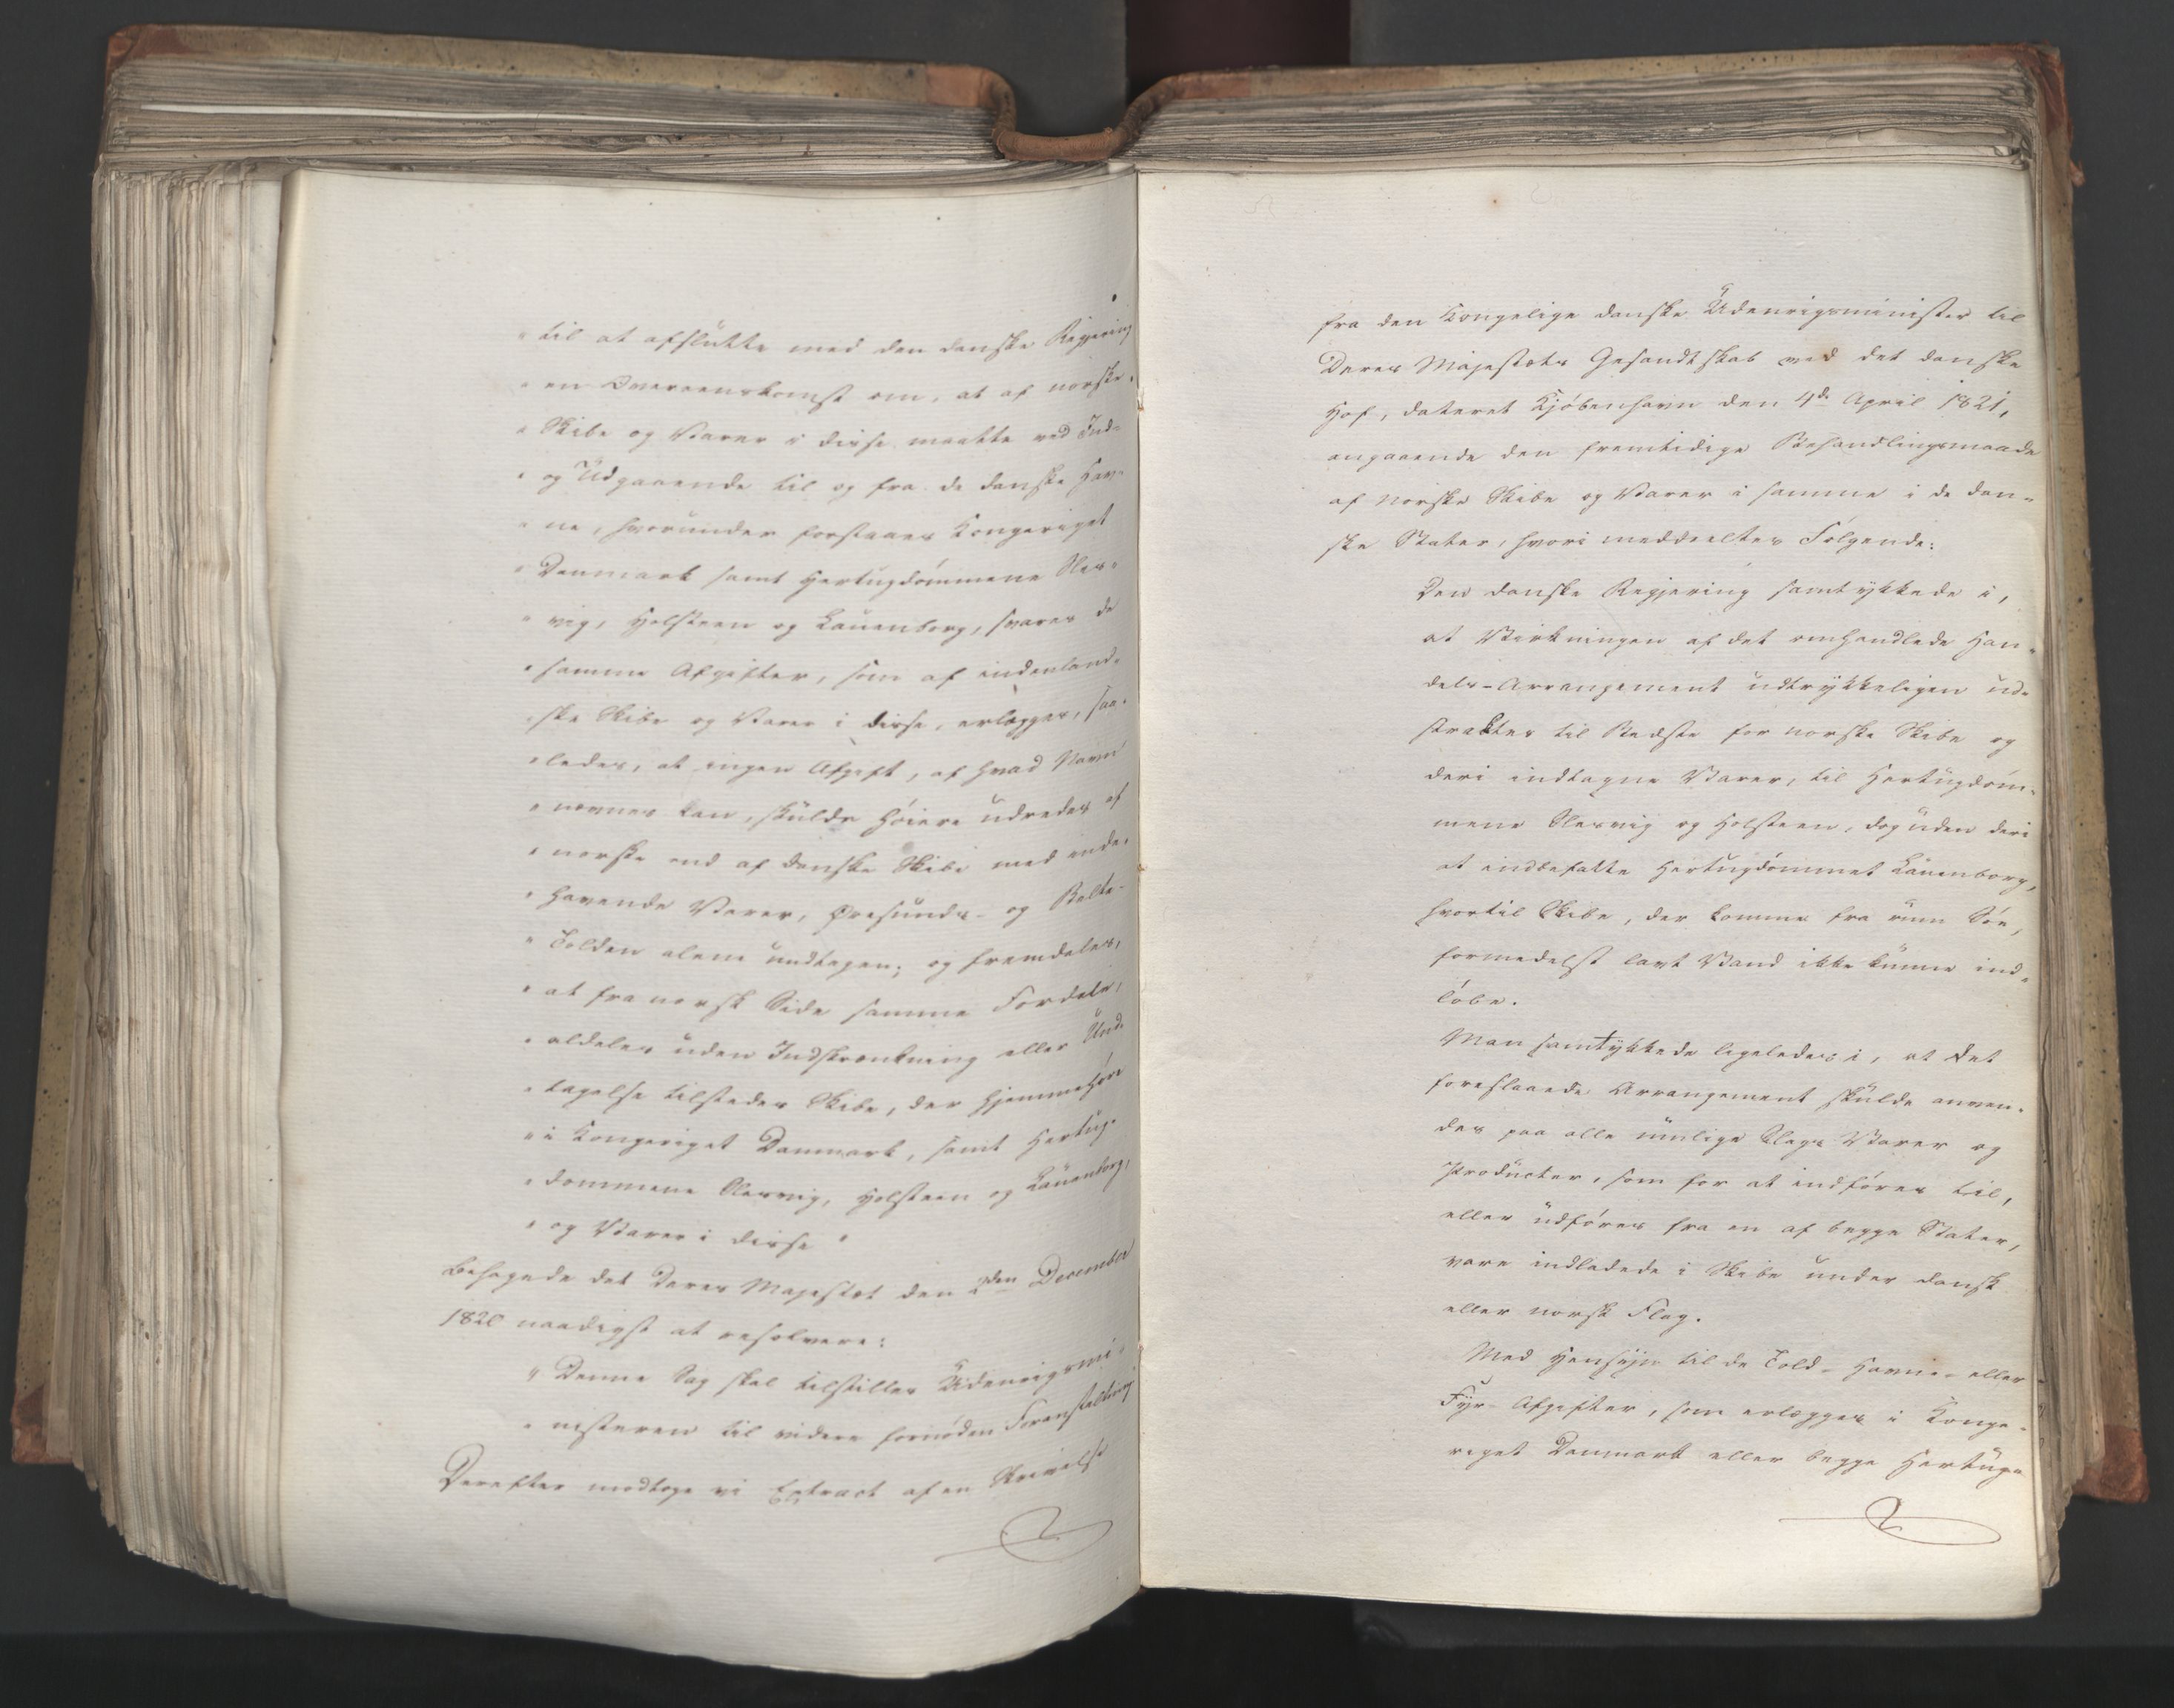 "til at afslutte med den danske Regjering
"en Overeenskomst om, at af norske
"Skibe og Varer i disse maatte ved Ind-
"og Udgaaende til og fra de danske Hav-
"ne, hvorunder forstaaes Kongeriget
"Danmark samt Hertugdømmene Sles-
"vig, Holsteen og Lauenborg, svares de
"samme Afgifter, som af indenland-
"ske Skibe og Varer i disse, erlægges, saa-
"ledes, at ingen Afgift, af hvad Navn
"nævnes kan, skulde høiere udredes af
"norske end af danske Skibe med inde-
"havende Varer, Øresunds- og Belte-
"Tolden alene undtagen; og fremdeles,
"at fra norsk Side samme Fordele,
"aldeles uden Indskrænkning eller Und-
"tagelse tilstedes Skibe, der hjemmehøre
"i Kongeriget Danmark, samt Hertug-
"dommene Slesvig, Holsteen og Lauenborg,
"og Varer i disse"
behagede det Deres Majestæt den 2den December
1820 naadigst at resolvere:
"Denne Sag skal tilstilles Udenrigsmi-
"nisteren til videre fornøden Foranstaltning
Derefter modtoge vi Extract af en Skrivelse
fra den kongelige danske Udenrigsminister til
Deres Majestæts Gesandtskab ved det danske
Hof, dateret Kjøbenhavn den 4de April 1821,
angaaende den fremtidige Behandlingsmaade
af norske Skibe og Varer i samme i de dan-
ske Stater, hvori meddeeltes Følgende:
Den danske Regjering samtykkede i,
at Virkningen af det omhandlede Han-
dels-Arrangement udtrykkeligen ud-
strækkes til Bedste for norske Skibe og
deri indtagne Varer, til Hertugdøm-
mene Slesvig og Holsteen, dog uden deri
at indbefatte Hertugdømmet Lauenborg,
hvortil Skibe, der komme fra rum Søe,
formedelst lavt Vand ikke kunne ind-
løbe.
Man samtykkede ligeledes i, at det
foreslaaede Arrangement skulde anven-
des paa alle mulige Slags Varer og
Producter, som for at indføres til,
eller udføres fra en af begge Stater,
vare indladede i Skibe under dansk
eller norsk Flag.
Med Hensyn til de Told- Havne- eller
Fyr- Afgifter, som erlægges i Konge-
riget Danmark eller begge Hertug-